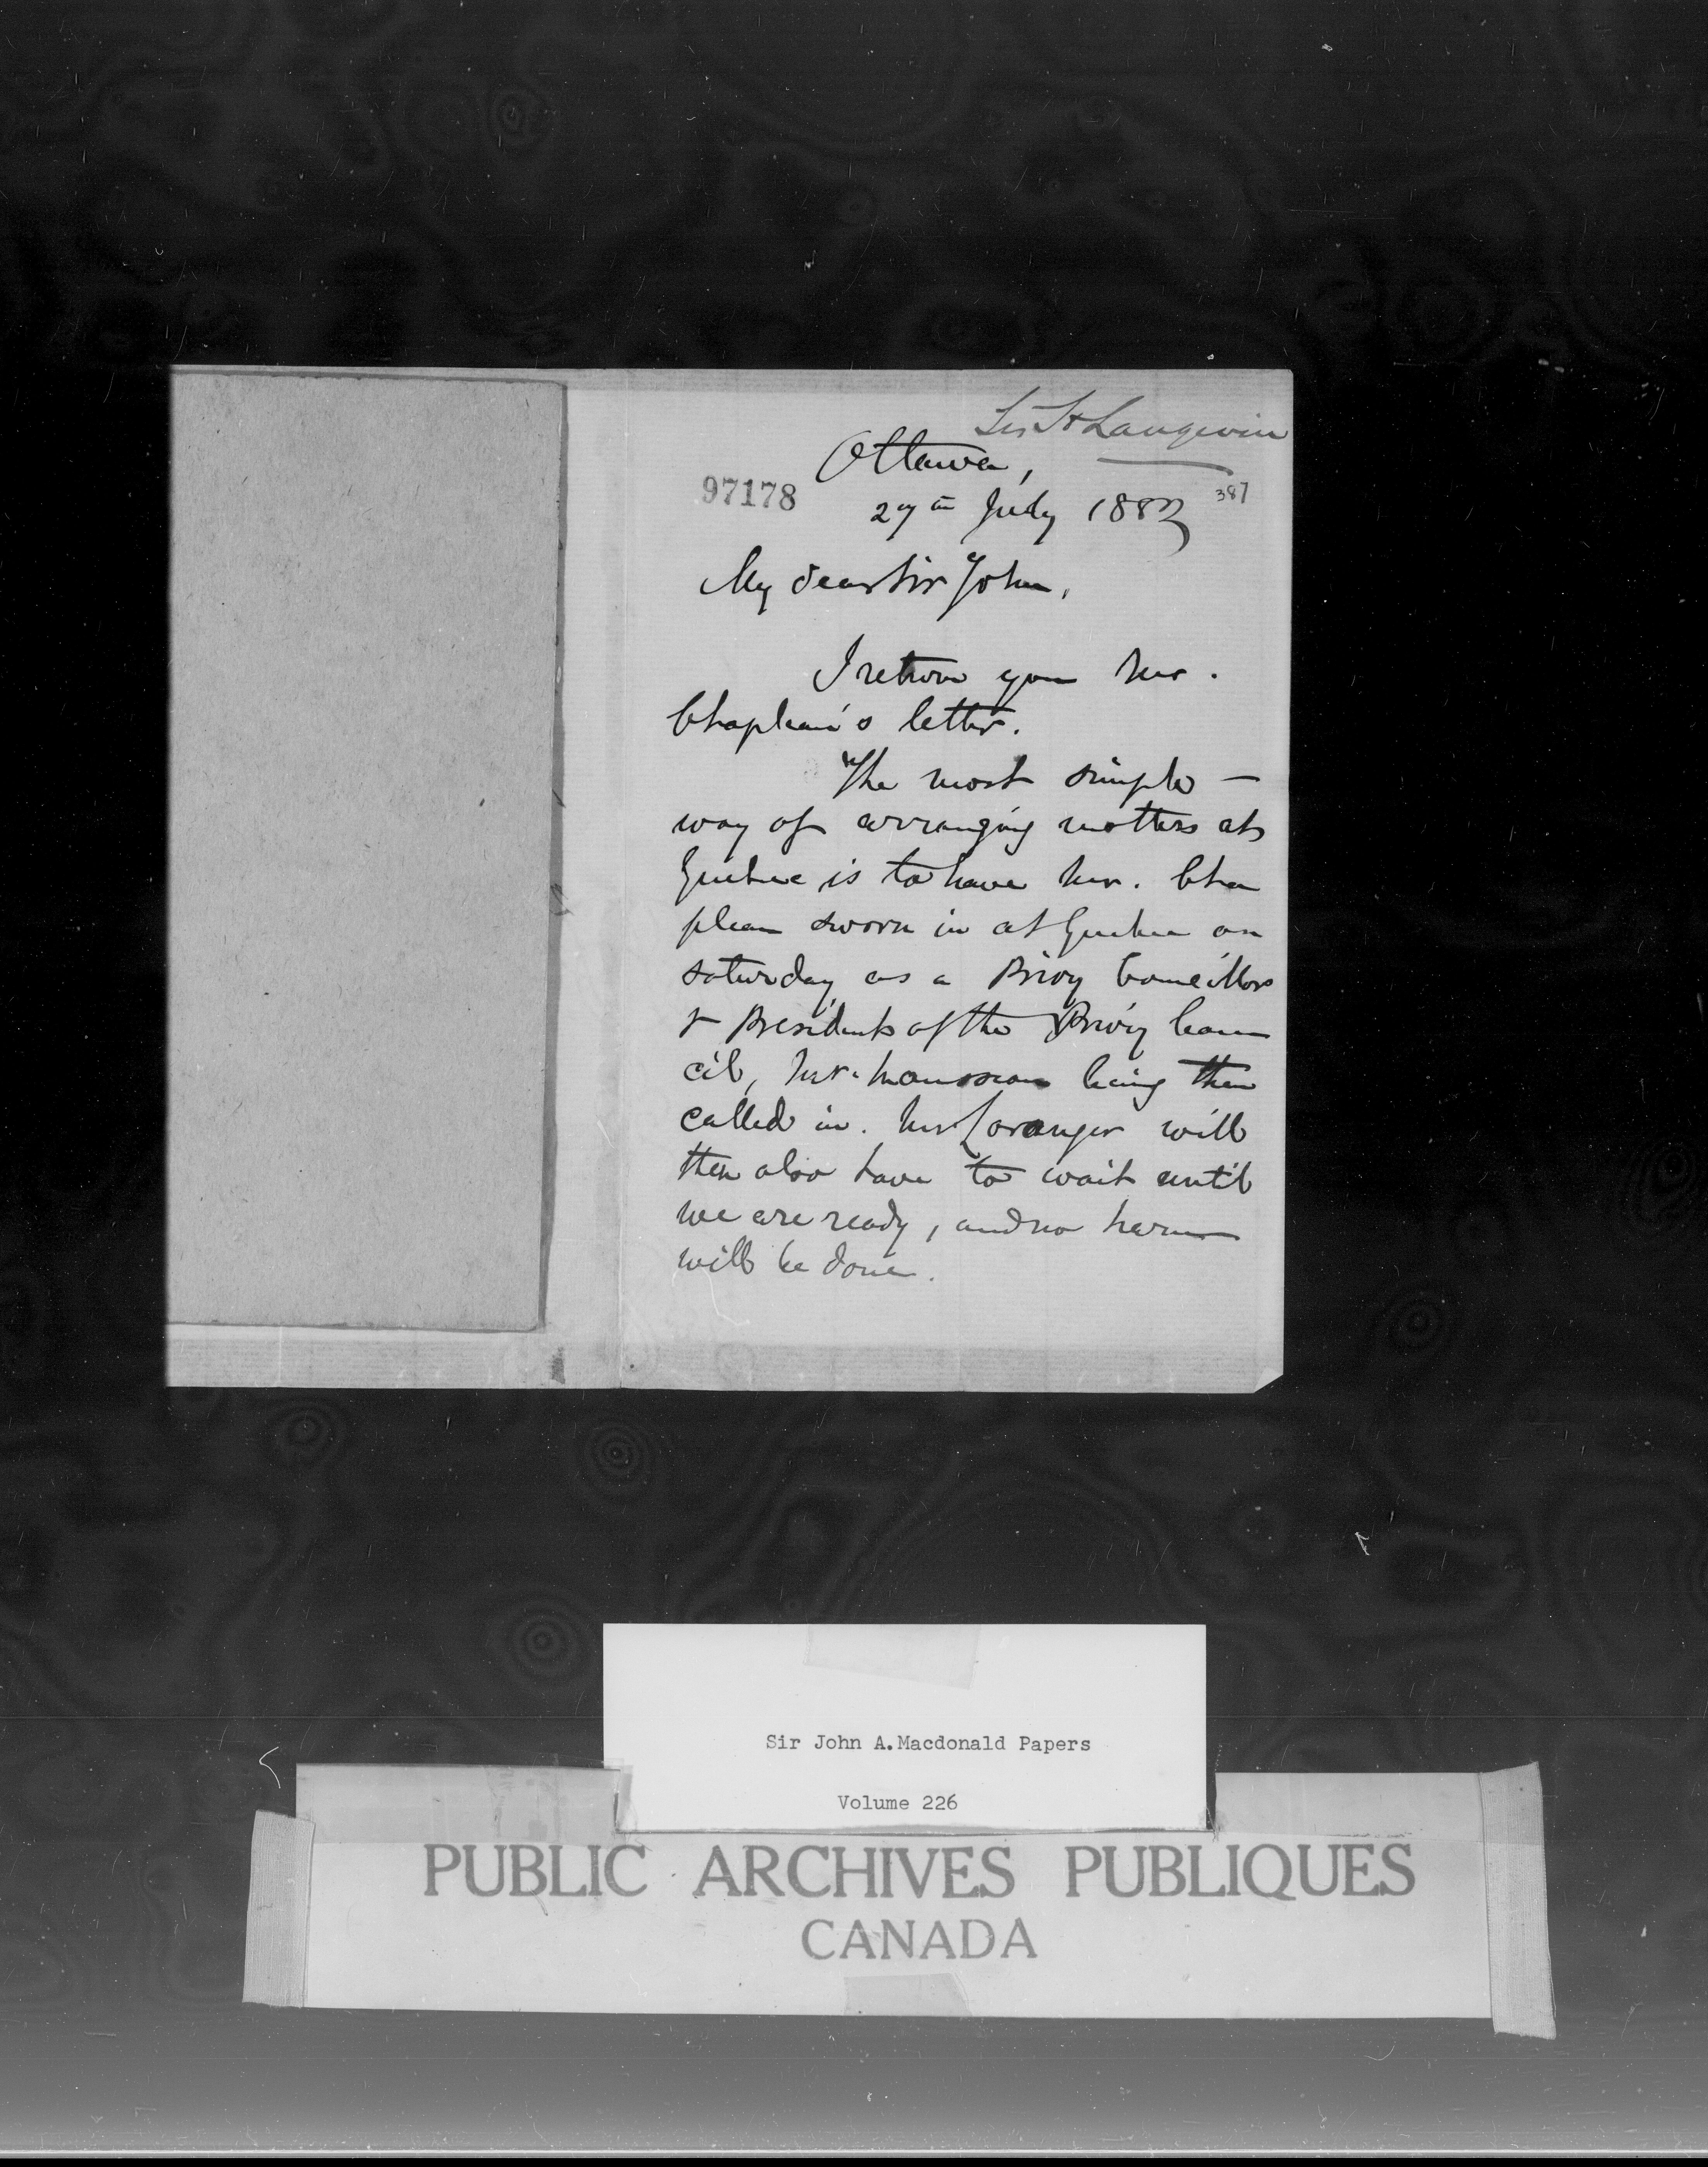 Sir H Langevin
Ottawa,
97178
387
27th July 1882
My dear Sir John,
I return you Mr.
Chapleau's letter.
The most simple —
way of arranging matters at
Quebec is to have Mr. Cha
pleau sworn in at Quebec on
Saturday as a Privy Councillor
& President of the Privy Coun
cil, Mr. Mousseau being then
called in. Mr Loranger will
then also have to wait until
we are ready, and no harm
will be done.
Sir John A.Macdonald Papers
Volume 226
PUBLIC ARCHIVES PUBLIQUES
CANADA